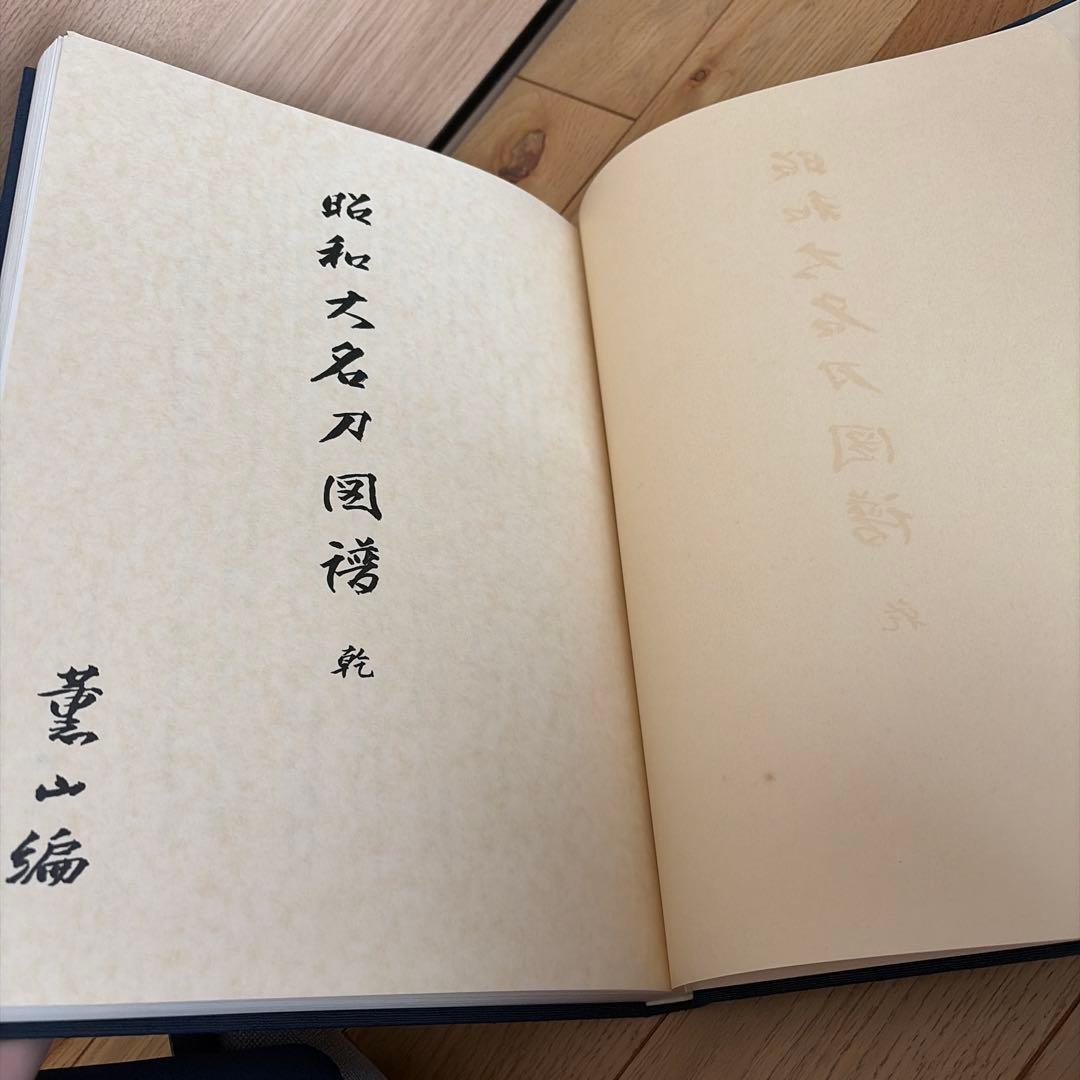 昭和大名刀図譜 乾
薫山編